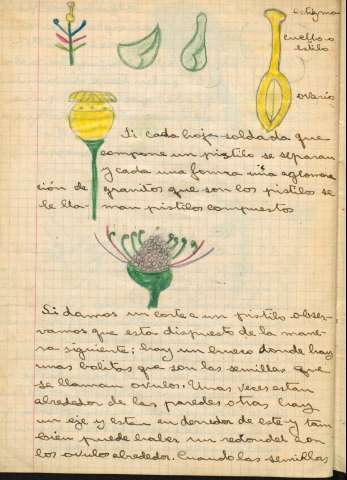 estigma
cuello o
estilo
ovario
Si cada hoja soldada que
compone un pistilo se separan
y cada una forma una aglomera
ción de granitos que son los pistilos se
le lla- man pistilos compuestos
Si damos un corte a un pistilo obser-
vamos que esta dispuesto de la mane-
ra siguiente; hay un hueco donde hay
unas bolitas que son las semillas que
se llaman ovulos. Unas veces estan
alrededor de las paredes otras hay
un eje y estan en derredor de este y tam
bien puede haber un redondel con
los ovulos alrededor. Cuando las semillas